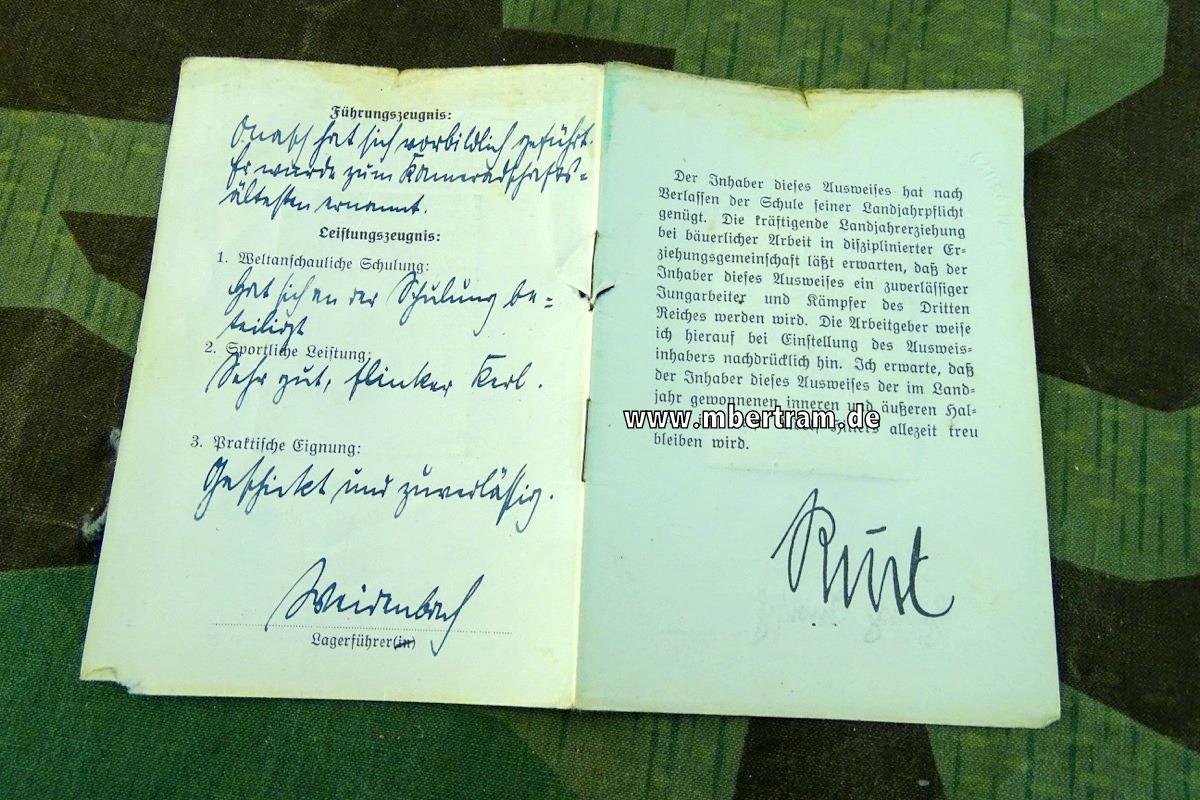 Führungszeugnis:
Onasch hat sich vorbildlich geführt.
Er wurde zum Kameradschafts-
ältesten ernannt.
Leistungszeugnis:
1. Weltanschauliche Schulung:
Hat sich an der Schulung be-
teiligt
2. Sportliche Leistung:
Sehr gut, flinker Kerl.
3. Praktische Eignung:
Geschickt und zuverlässig.
Weidenbach
Lagerführer(in)
Der Inhaber dieses Ausweises hat nach
Verlassen der Schule seiner Landjahrpflicht
genügt. Die kräftigende Landjahrerziehung
bei bäuerlicher Arbeit in disziplinierter Er-
ziehungsgemeinschaft läßt erwarten, daß der
Inhaber dieses Ausweises ein zuverlässiger
Jungarbeiter und Kämpfer des Dritten
Reiches werden wird. Die Arbeitgeber weise
ich hierauf bei Einstellung des Ausweis-
inhabers nachdrücklich hin. Ich erwarte, daß
der Inhaber dieses Ausweises der im Land-
jahr gewonnenen inneren und äußeren Hal-
allezeit treu
bleiben wird.
www.mbertram.de
Rust